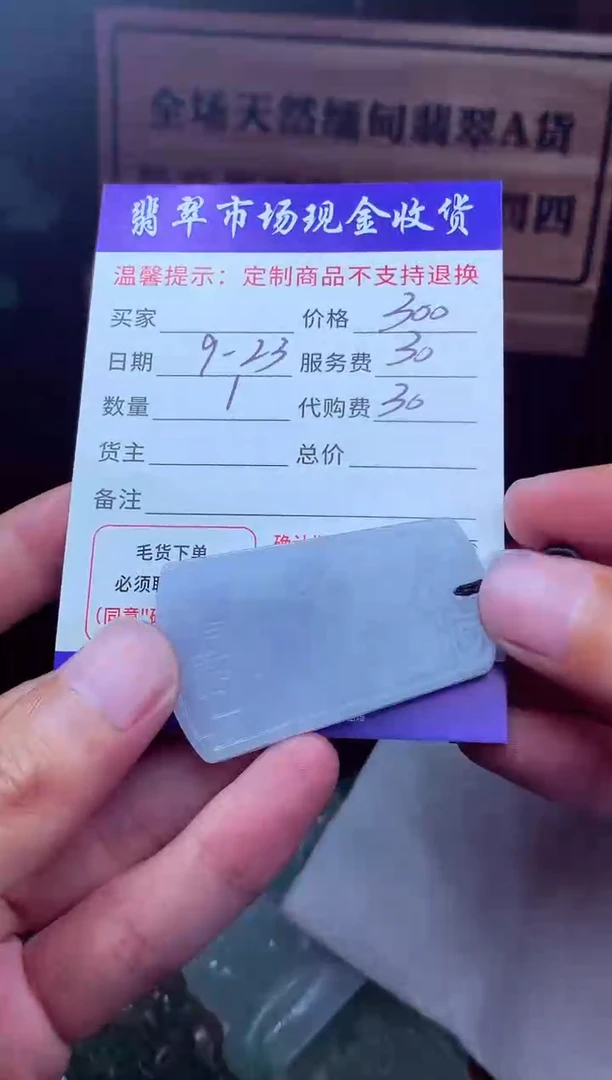 全场天然缅甸翡翠A货
罚四
翡翠市场现金收货
温馨提示：定制商品不支持退换
买家 价格 300
日期 9-23 服务费 30
数量 1 代购费 30
货主 总价
备注
毛货下单
必须
(同意"